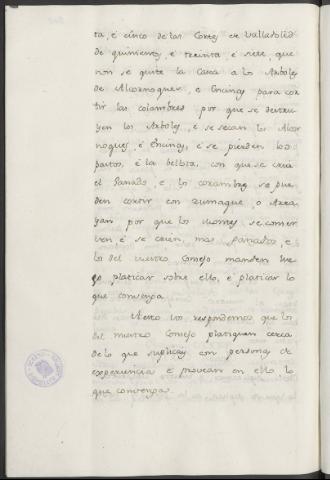 ta, é cinco de las Cortes de Valladolid
de quinientos, é treinta é siete, que
non se quite la Casca a los Arboles
de Alcornoques, é Encinas para cor
tir las colambres por que se destru
yen los Arboles, é se secan los Alcor
noques, é Encinas, é se pierden los
pastos, é la bellota, con que se cria
el Ganado, e los corambres se pue
den cortir con zumaque, o Array
an por que los montes se conser
ven é se crien, mas ganados, e
los del vuestro Consejo manden lue
go platicar sobre ello, é platicar lo
que convenga.
A esto vos respondemos que los
del nuestro Consejo platiquen cerca
de lo que suplicays con personas de
experiencia é provean en ello lo
que convenga.